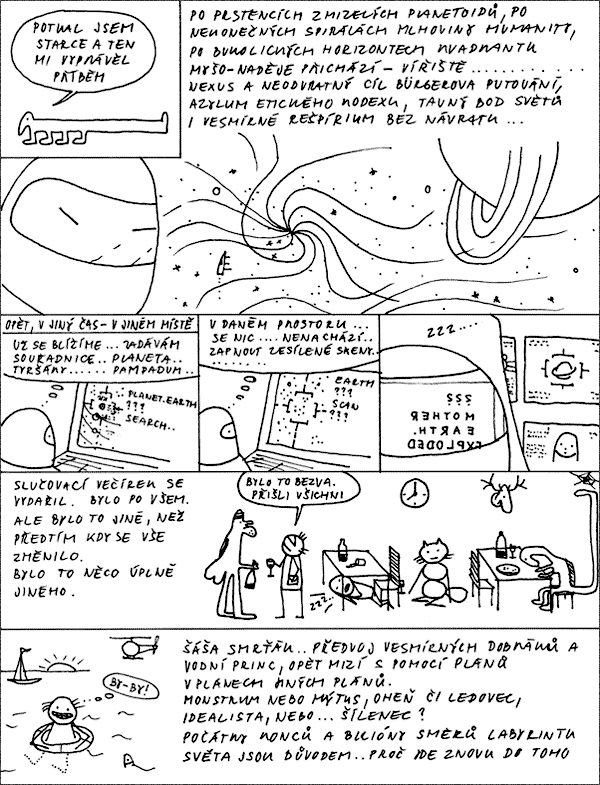 POTKAL JSEM
STARCE A TEN
MI VYPRÁVĚL
PŘÍBĚH
PO PRSTENCÍCH ZMIZELÝCH PLANETOIDŮ, PO
NEKONEČNÝCH SPIRÁLÁCH MLHOVINY HUMANITY,
PO BUKOLICKÝCH HORIZONTECH KVADRANTU
MYŠO-NADĚJE PŘICHÁZÍ - VÍŘIŠTĚ............
NEXUS A NEODVRATNÝ CÍL BÜRGEROVA PUTOVÁNÍ,
AZYLUM ETICKÉHO KODEXU, TAVNÝ BOD SVĚTŮ
I VESMÍRNÉ REŠPÍRIUM BEZ NÁVRATU...
OPĚT, V JINÝ ČAS - V JINÉM MÍSTĚ
UŽ SE BLÍŽÍME... ZADÁVÁM
SOUŘADNICE.. PLANETA..
TYRŠÁNY...... PAMPADUM..
PLANET.EARTH
???
SEARCH..
V DANÉM PROSTORU...
SE NIC.... NENACHÁZÍ..
ZAPNOUT ZESÍLENÉ SKENY..
......
EARTH
???
SCAN
???
ZZZ...
???
MOTHER
EARTH.
EXPLODED
SLUČOVACÍ VEČÍREK SE
VYDAŘIL. BYLO PO VŠEM.
ALE BYLO TO JINÉ, NEŽ
PŘEDTÍM KDY SE VŠE
ZMĚNILO.
BYLO TO NĚCO ÚPLNĚ
JINÉHO.
BYLO TO BEZVA.
PŘIŠLI VŠICHNI
ZZZ...
BY-BY!
ŠÁŠA SMRŤÁK.. PŘEDVOJ VESMÍRNÝCH DOBRÁKŮ A
VODNÍ PRINC, OPĚT MIZÍ S POMOCÍ PLÁNŮ
V PLÁNECH JINÝCH PLÁNŮ.
MONSTRUM NEBO MÝTUS, OHEŇ ČI LEDOVEC,
IDEALISTA, NEBO... ŠÍLENEC?
POČÁTKY KONCŮ A BILIÓNY SMĚRŮ LABYRINTU
SVĚTA JSOU DŮVODEM.. PROČ JDE ZNOVU DO TOHO